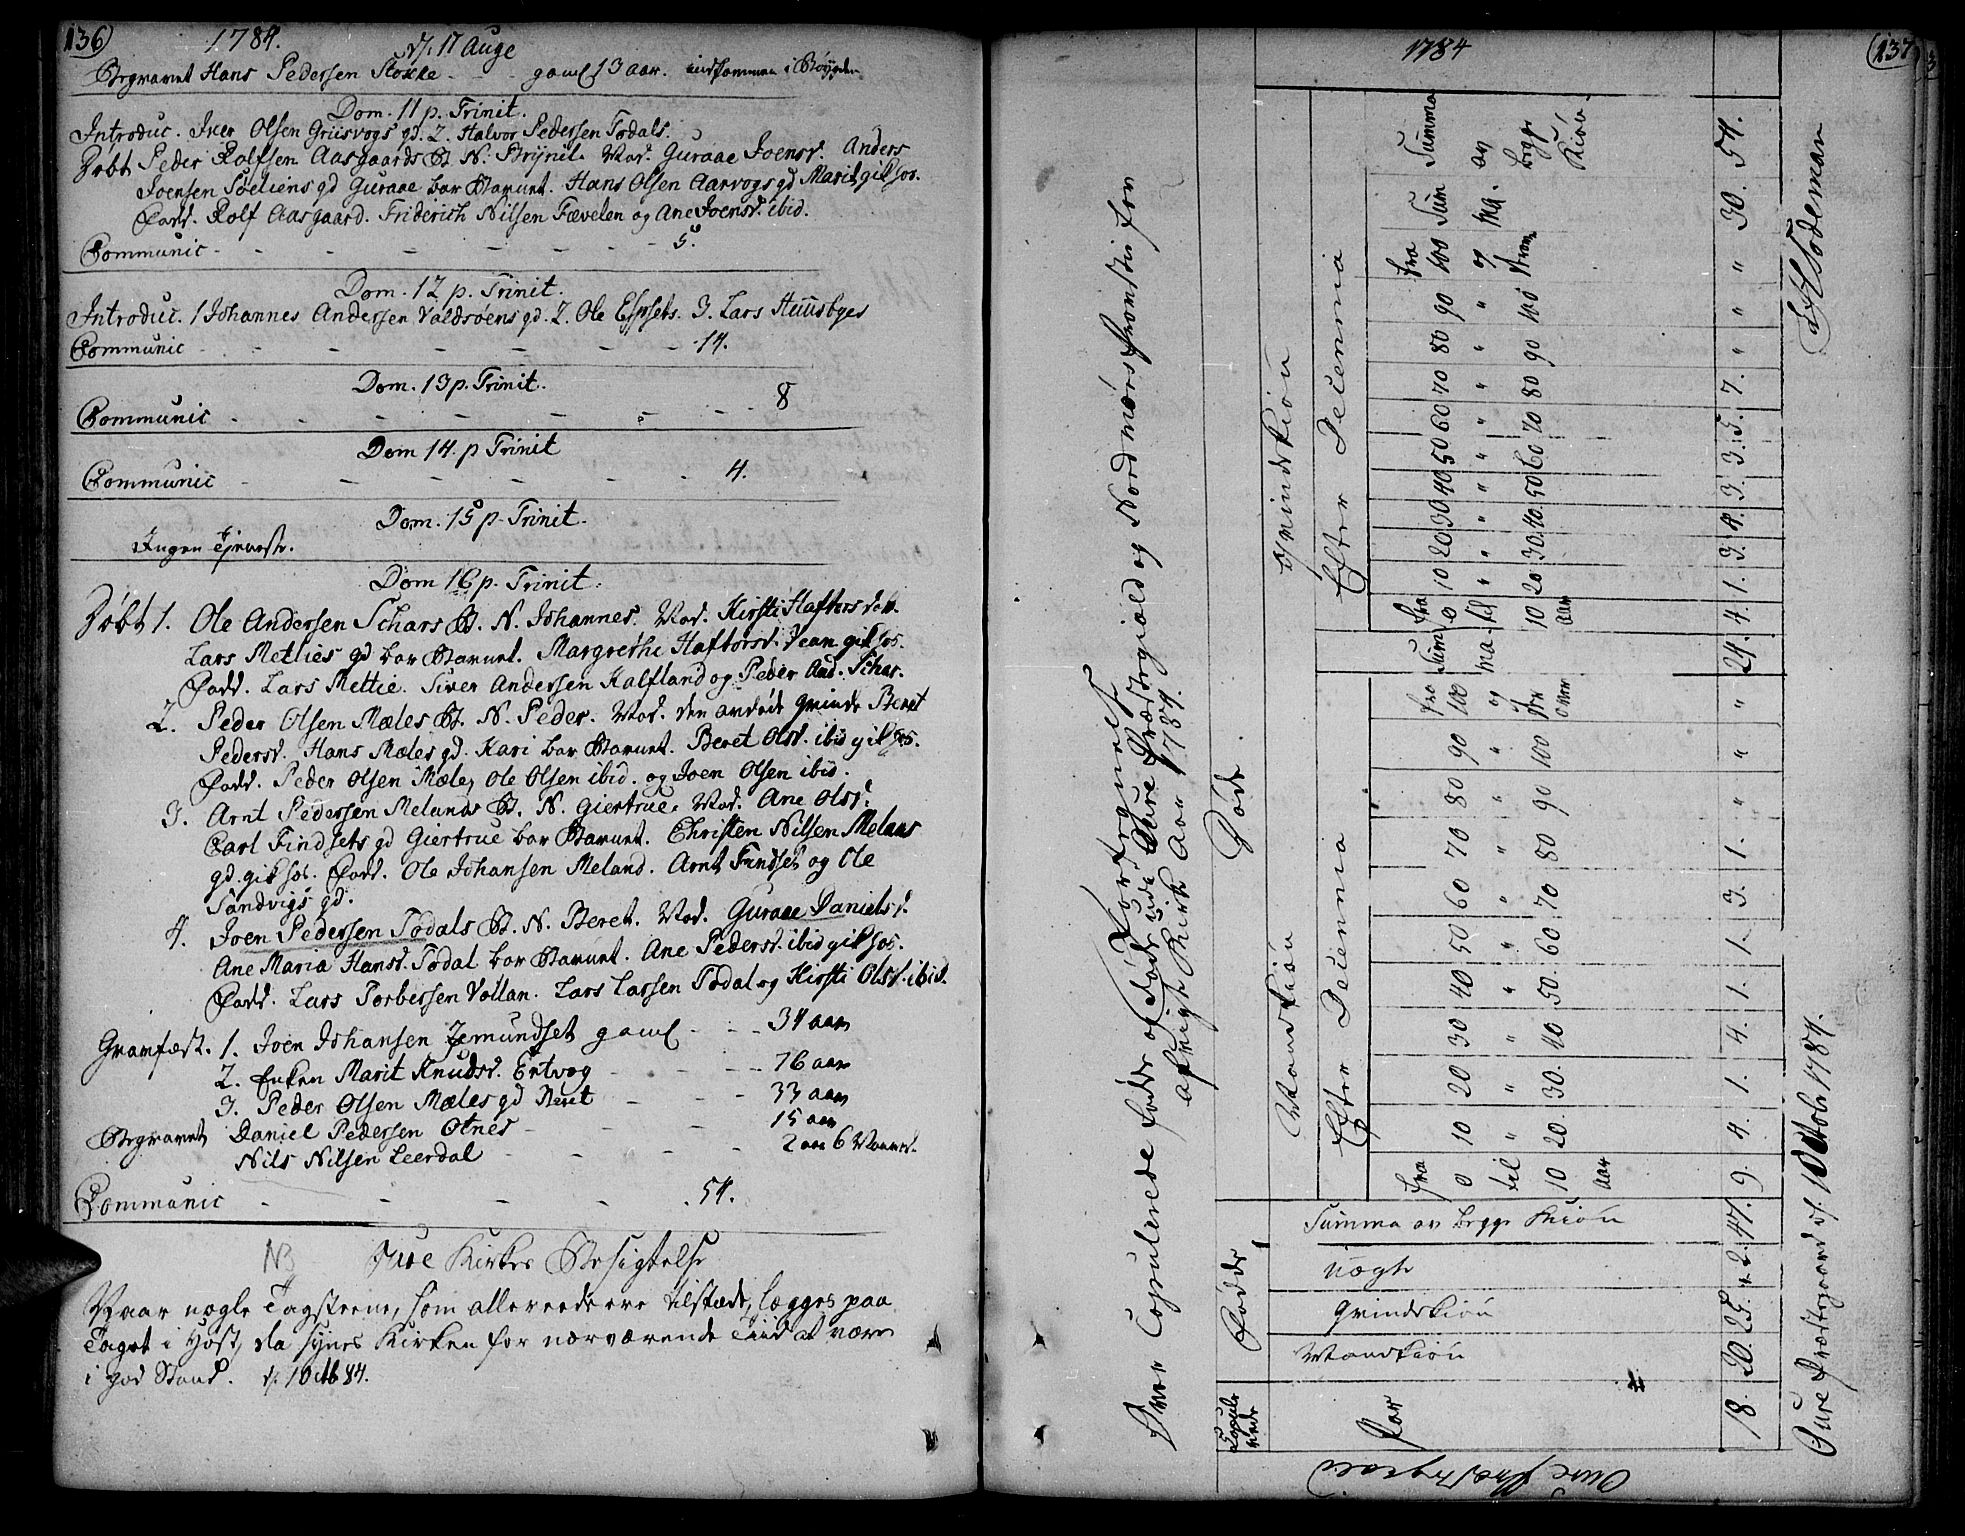 136) 1784. d. 17 Aug
Begravet Hans Pedersen Stokke - - gaml 13 aar. indkommen i Bøygden
Dom. 11 p. Trinit.
Introduc. Iver Olsen Griisvogs gd. 2. Halvor Pedersen Todals.
Døbt Peder Rolfsen Aasgaards B. N. Brynil. Mod. Guraae Joensd. Anders
Joensen Søeliens gd Guraae bar Barnet. Hans Olsen Aarvogs gd Marit gik hos.
Fadd. Rolf Aasgaard. Friderich Nilsen Fævelen og Ane Joensd. ibid.
Communic - - - - - - - 5.
Dom. 12 p. Trinit.
Introduc. 1 Johannes Andersen Valdsøens gd. 2. Ole Espsets. 3. Lars Huusbyes
Communic - - - - - - - 14.
Dom. 13 p. Trinit.
Communic - - - - - - - 8
Dom 14. p Trinit
Communic - - - - - - 4.
Dom. 15 p. Trinit.
Ingen Tjeneste.
Dom 16 p. Trinit.
Døbt 1. Ole Andersen Schars B. N. Johannes. Mod. Kirsti Haftorsdatt.
Lars Metlies gd bar Barnet. Margrethe Haftorsd. Vean gik hos.
Fadd. Lars Mettie. Siver Andersen Kalfland og Peder And. Schar.
2. Peder Olsen Mæles B. N. Peder. Mod. den avdøde Qvinde Beret
Pedersd. Hans Mæles gd. Kari bar Barnet. Beret Olsd. ibid gik hos.
Fadd. Peder Olsen Mæle, Ole Olsen ibid. og Joen Olsen ibid.
3. Arnt Pedersen Melands B. N. Giertrue. Mod. Ane Olsd.
Carl Findsets gd Giertrue bar Barnet. Christen Nilsen Melans
gd. gik hos. Fadd. Ole Johansen Meland. Arnt Findset og Ole
Sandvigs gd.
4. Joen Pedersen Todals B. N. Beret. Mod. Guraae Danielsd.
Ane Maria Hansd. Todal bar Barnet. Ane Pedersd. ibid gik hos.
Fadd. Lars Torbersen Vollan. Lars Larsen Todal og Kirsti Olsd. ibid.
Gravfæst. 1. Joen Johansen Jemundset gaml - - 34 aar
2. Enken Marit Knudsd. Ertvog - - - 76 aar
3. Peder Olsen Mæles gd Beret - - 33 aar
Begravet Daniel Pedersen Otnes - - - 15 aar
Nils Nilsen Leerdal - - - - 2 aar 6 Maaned.
Communic - - - - 54.
NB Aure Kirkes Besigtelse
Naar nogle Tagsteene, som allereede ere tilstæde, lægges paa
Taget i Høst, da synes Kirken for nærværende Tiid at være
i god Stand. d. 1 Octb 84.
1784 (137
Fortegnelse
Over Copulerede fødde og døde udi Aure Præstegiæld og Nordmørs Provstie fra
afvigte Kirke Aar 1784.
Aure Præstegield
Copulerede
Par
18.
Fødde
Mandkiøn
20.
Qvindekiøn
25.
uægte
2.
Summa av begge Kiøn
47.
Døde
Mandkiøn
Efter Decennia
fra 0 til 10 aar
10 " 20.
20 " 30.
30 " 40
40 " 50.
50 " 60
60 " 70
70 " 80
80 " 90
90 " 100
fra 100 og der over
Summa.
9 4. 1. 4. 1. 1. 3. 1. " " " 24.
Qvindekiøn
Efter Decennia
fra 0 til 10 aar
10 " 20
20 " 30.
30 " 40.
40 " 50
50 " 60
60 " 70
70 " 80
80 " 90
90 " 100
fra 100 og
Summa.
4. 1. 3. 4. 3. 3. 5. 7. " " " 30.
Summa av begge Kiøn
54.
Aure Præstegaard d. 1 Octobr 1784.